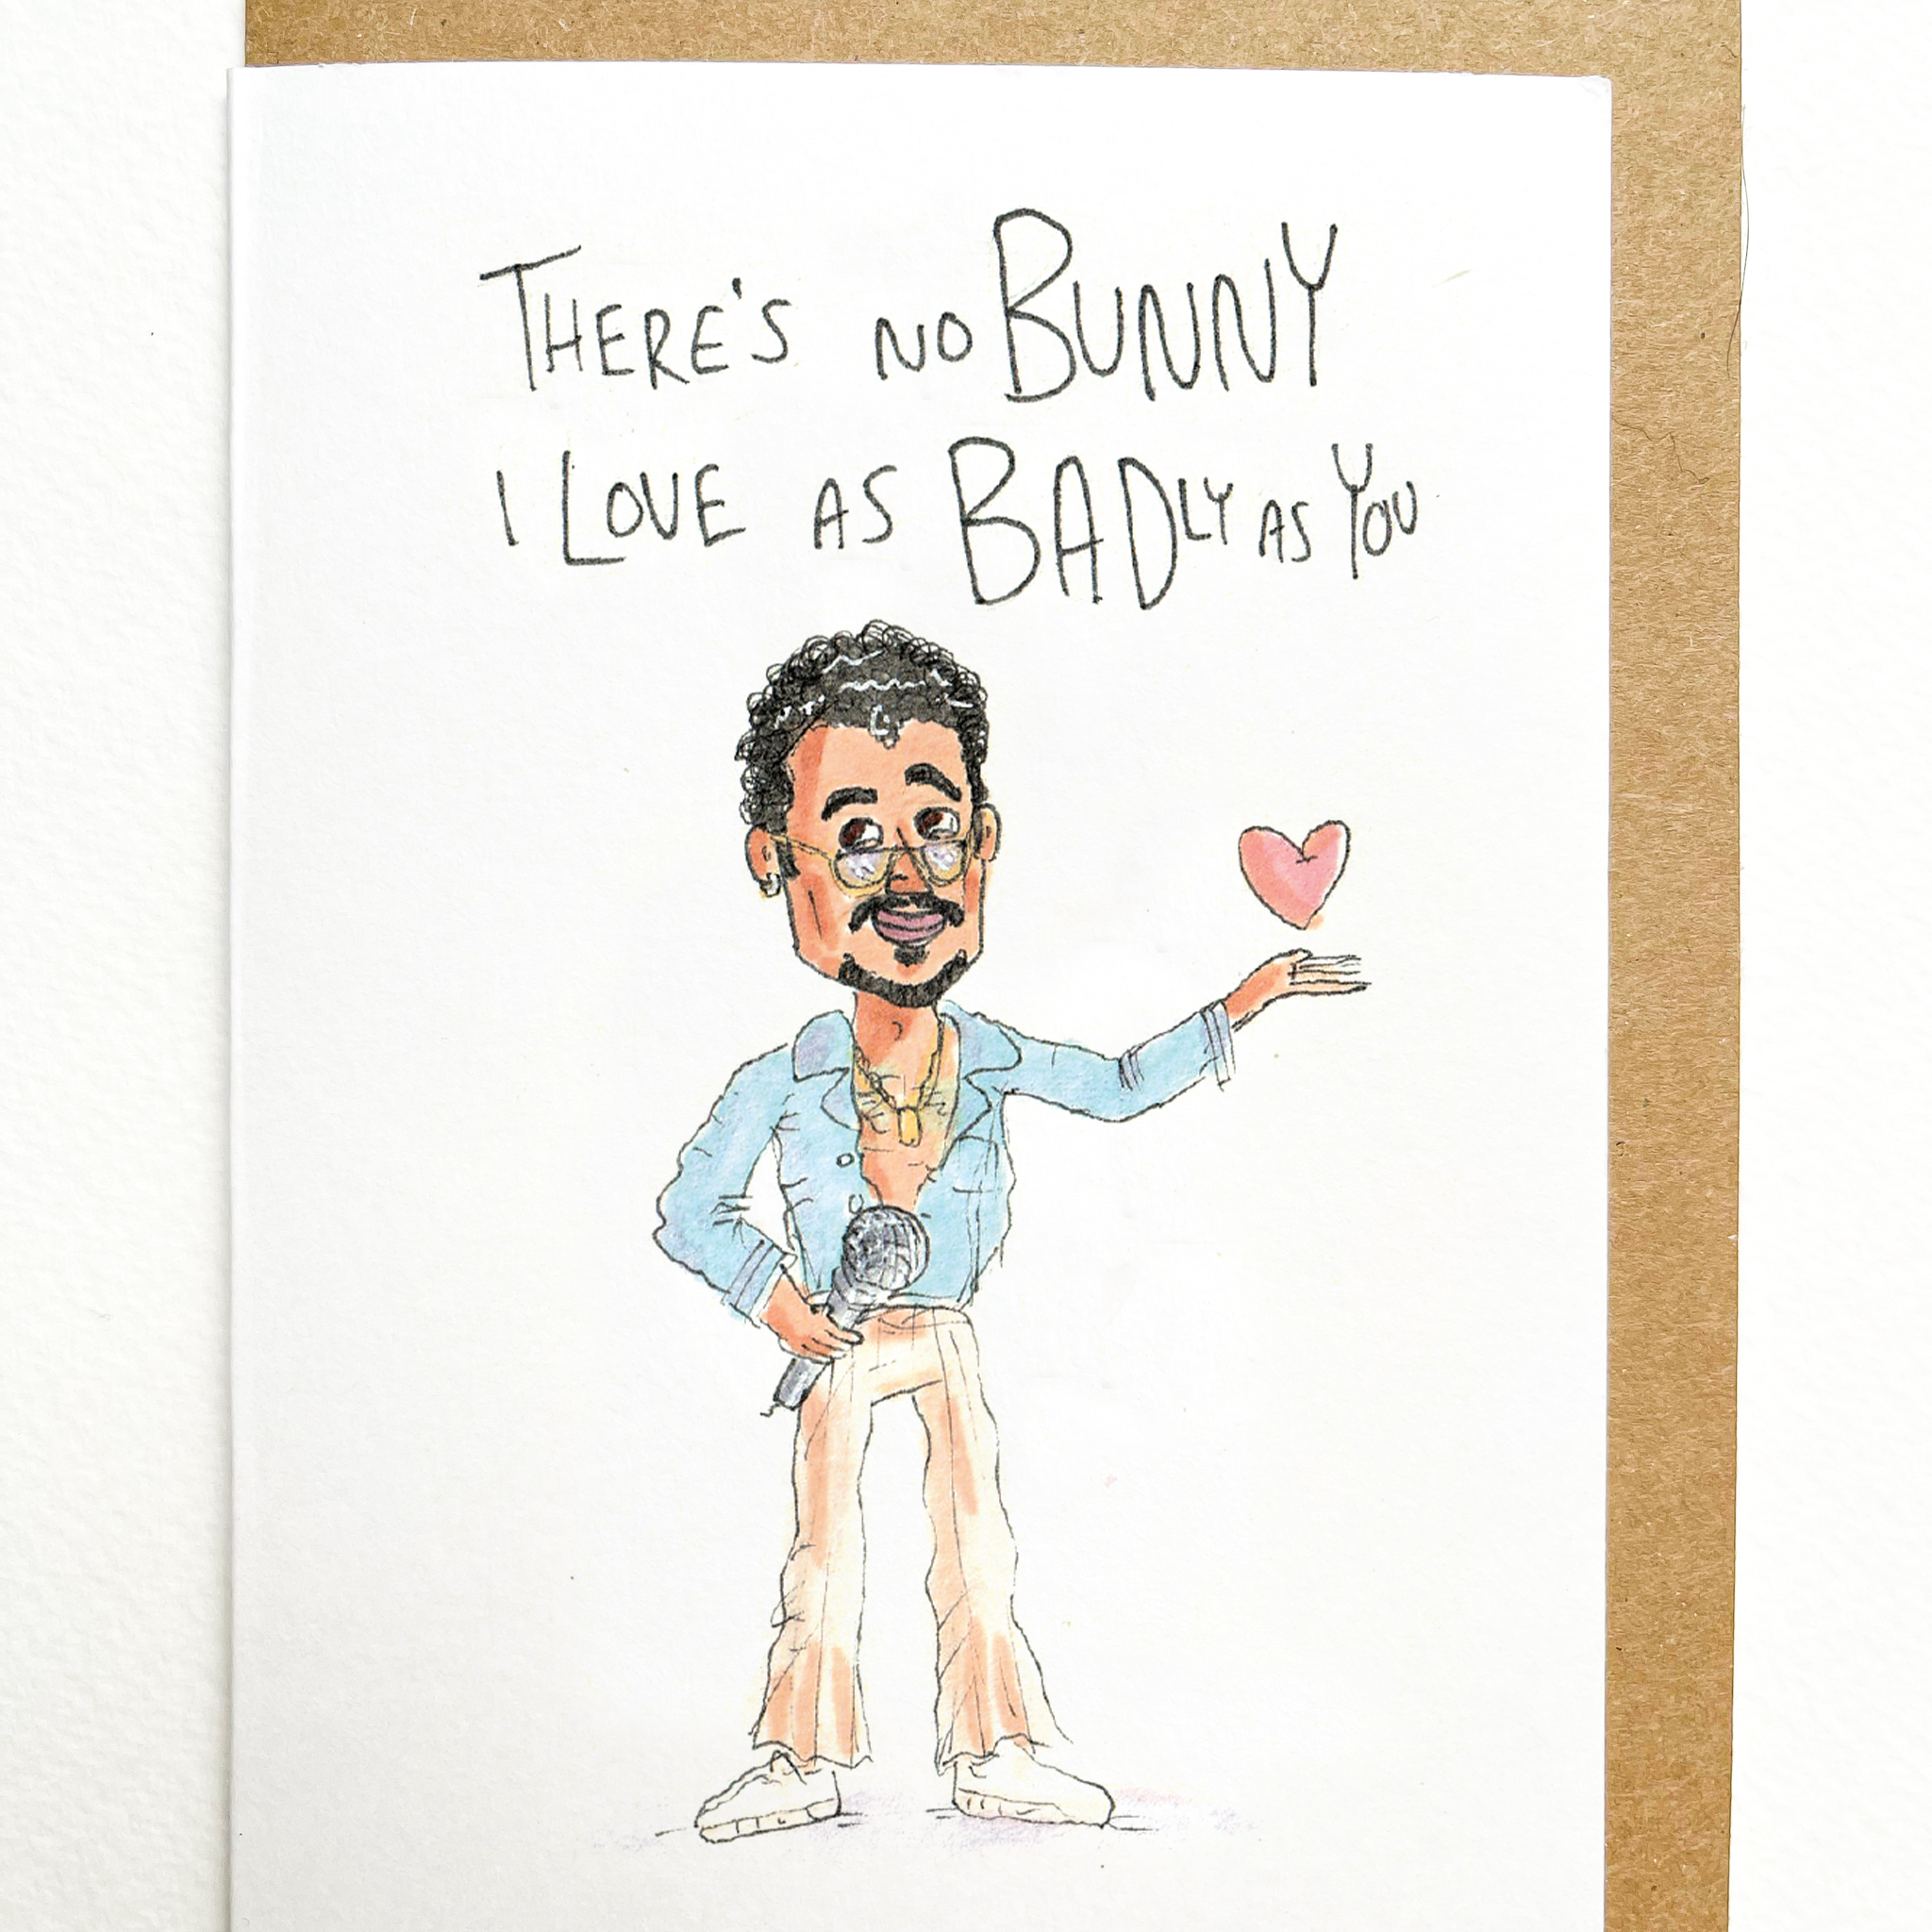 THERE'S NO BUNNY
I LOVE AS BADLY AS YOU